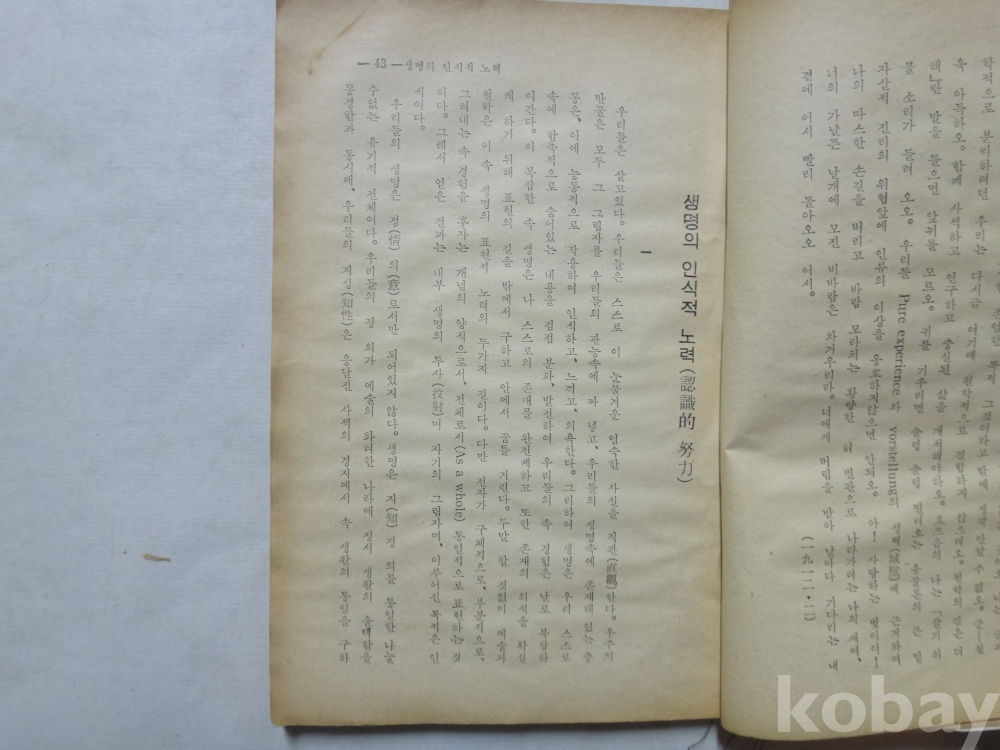 학적으로 분리하려던 우리는 다시금 여기에 철학적으로 결합하지 않으려오. 철학의 길은 더
욱 아득하오. 함께 사색하고 연구하고 충실된 삶을 개척해야하오. 나는
해」란 말을 들으면 앞뒤를 모르오. 귀를 기우리면 출렁 출렁 밀려오는 큰 물
소리가 들려 오오. 우리를 Pure experience와 vorstellung의 성벽(城壁)에 근거하여
자살적 진리의 위험앞에 인류의 이상을 옹호하지않으면 안되오. 아! 사랑하는 벗이여!
나의 따스한 손길을 버리고 바람 모라치는 황량한 허 벌판으로 나라가려는 나의 새여.
너의 가냘픈 날개에 모진 비바람은 차거우리라. 네에게 버림을 받아 날마다 기다리는 내
곁에 어서 빨리 돌아오오 어서.
— 43 — 생명의 인식적 노력
생명의 인식적 노력(認識的 努力)
一
우리들은 살고있다. 우리들은 스스로 이 눈물겨운 엄숙한 사실을 직관(直觀)한다. 우주식
만물은 모두 그 그림자를 우리들의 관능속에 파 넣고, 우리들의 생명속에 존재해 있는 충
동은, 이에 능동적으로 작용하여 인식하고, 느끼고, 의욕한다. 그리하여 생명은 우리 스스로
속에 함축적으로 숨어있는 내용을 점점 분화, 발전하여 우리들의 속 경험은 날로 복잡하
여간다. 이 복잡한 속 생명은 나 스스로의 존재를 완전케하고 또한 존재의 의식을 확실
케 하기 위해 표현의 길을 밖에서 구하고 안에서 꿈틀 거린다. 두말 할 것없이 예술과
철학은 이 속 생명의 표현적 노력의 두가지 길이다. 다만 전자가 구체적으로, 부분적으로,
그려내는 속 경험을 후자는 개념의 양식으로서, 전체로서(As a whole) 통일적으로 표현하는 것
이다. 그래서 얻은 결과는 내부 생명의 투사(投射)며 자기의 그림자며, 이루어진 목적은 인
식이다.
우리들의 생명은 정(情) 의(意)로서만 되어있지 않다. 생명은 지(知) 정 의를 통일한 나눌
수없는 유기적 전체이다. 우리들의 정 의가 예술의 화려한 나라에 정서 생활의 윤택함을
동경함과 동시에, 우리들의 지성(知性)은 응달진 사색의 경지에서 속 생활의 통일을 구하
kobay